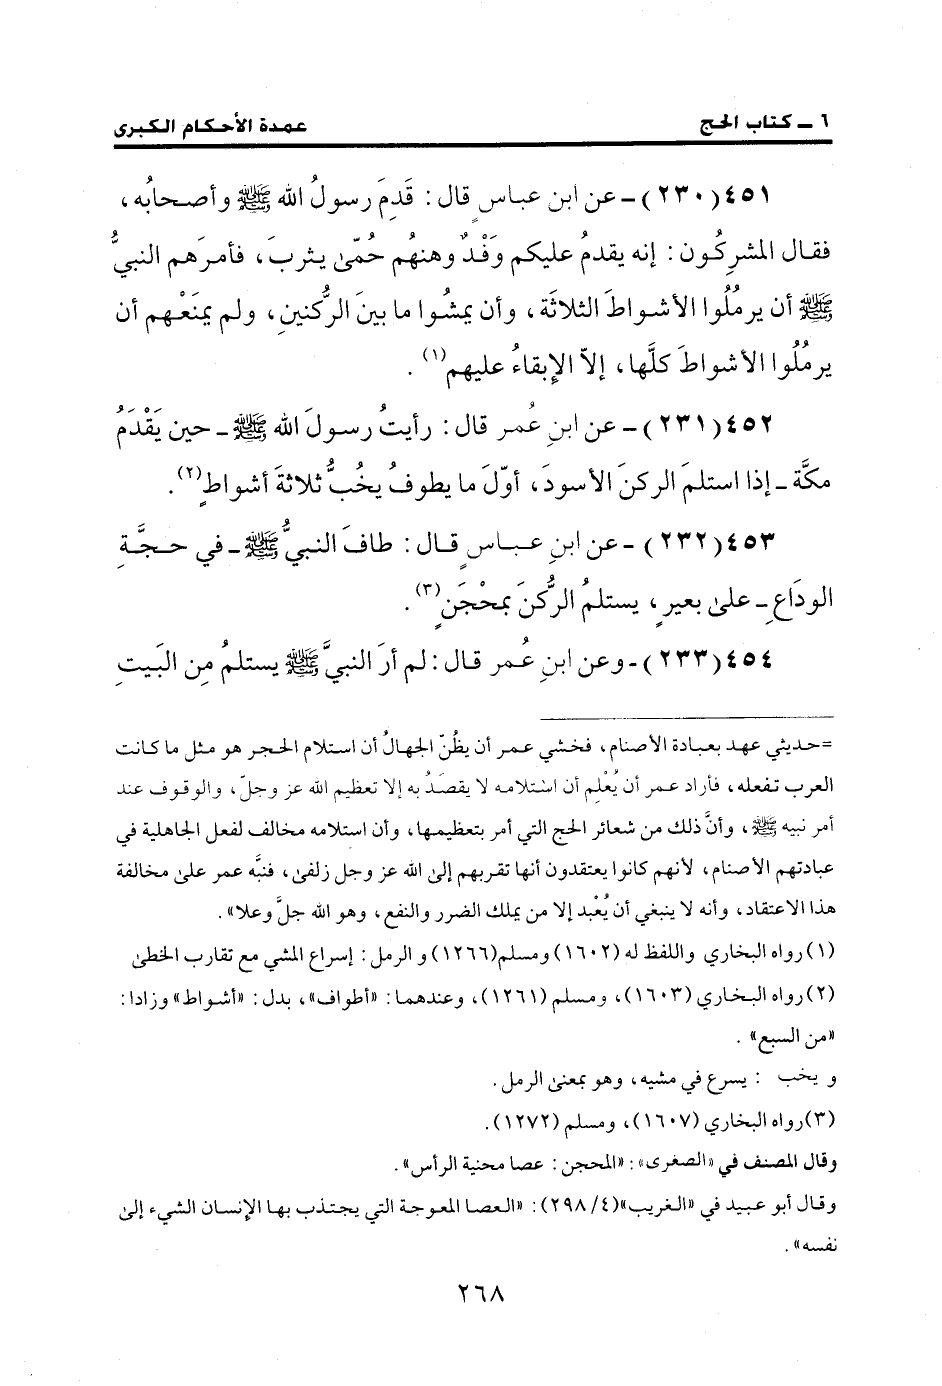 ٦ ـ كتاب الحج
عمدة الأحكام الكبرى
٤٥١ (٢٣٠) ـ عن ابن عباسٍ قال : قَدِمَ رسولُ الله ﷺ وأصحابُه ،
فقال المشركُون : إنه يقدمُ عليكم وَفْدٌ وهنهُم حُمّى يثربَ ، فأمرَهم النبيُّ
ﷺ أن يرمُلُوا الأشواطَ الثلاثَة ، وأن يمشُوا ما بينَ الرُّكنينِ ، ولم يمنَعْهم أن
يرمُلُوا الأشواطَ كلَّها ، إلاّ الإبقاءُ عليهم(١) .
٤٥٢ (٢٣١) ـ عن ابنِ عُمر قال : رأيتُ رسولَ الله ﷺ ـ حين يَقْدَمُ
مكَّة ـ إذا استلمَ الركنَ الأسودَ ، أوّلَ ما يطوفُ يخُبُّ ثلاثةَ أشواطٍ(٢) .
٤٥٣ (٢٣٢) ـ عن ابنِ عباسٍ قال : طافَ النبيُّ ﷺ ـ في حجَّةِ
الودَاعِ ـ على بعيرٍ ، يستلمُ الرُّكنَ بمحْجَنٍ(٣) .
٤٥٤ (٢٣٣) ـ وعن ابنِ عُمر قال : لم أرَ النبيَّ ﷺ يستلمُ مِن البَيتِ
= حديثي عهد بعبادة الأصنام ، فخشي عمر أن يظُنّ الجهالُ أن استلام الحجر هو مثل ما كانت
العرب تفعله ، فأراد عمر أن يُعْلِم أن استلامه لا يقصَدُ به إلا تعظيم الله عز وجلّ ، والوقوف عند
أمر نبيه ﷺ ، وأنَّ ذلك من شعائر الحج التي أمر بتعظيمها ، وأن استلامه مخالف لفعل الجاهلية في
عبادتهم الأصنام ، لأنهم كانوا يعتقدون أنها تقربهم إلى الله عز وجل زلفى ، فنبَّه عمر على مخالفة
هذا الاعتقاد ، وأنه لا ينبغي أن يُعْبد إلا من يملك الضرر والنفع ، وهو الله جلَّ وعلا» .
(١) رواه البخاري واللفظ له (١٦٠٢) ومسلم (١٢٦٦) و الرمل : إسراع المشي مع تقارب الخطى
(٢) رواه البخاري (١٦٠٣) ، ومسلم (١٢٦١) ، وعندهما : «أطواف» ، بدل : «أشواط» وزادا :
«من السبع» .
و يخب : يسرع في مشيه ، وهو بمعنى الرمل .
(٣) رواه البخاري (١٦٠٧) ، ومسلم (١٢٧٢) .
وقال المصنف في «الصغرى» : «المحجن : عصا محنية الرأس» .
وقال أبو عبيد في «الغريب» (٤/ ٢٩٨) : «العصا المعوجة التي يجتذب بها الإنسان الشيء إلى
نفسه» .
٢٦٨